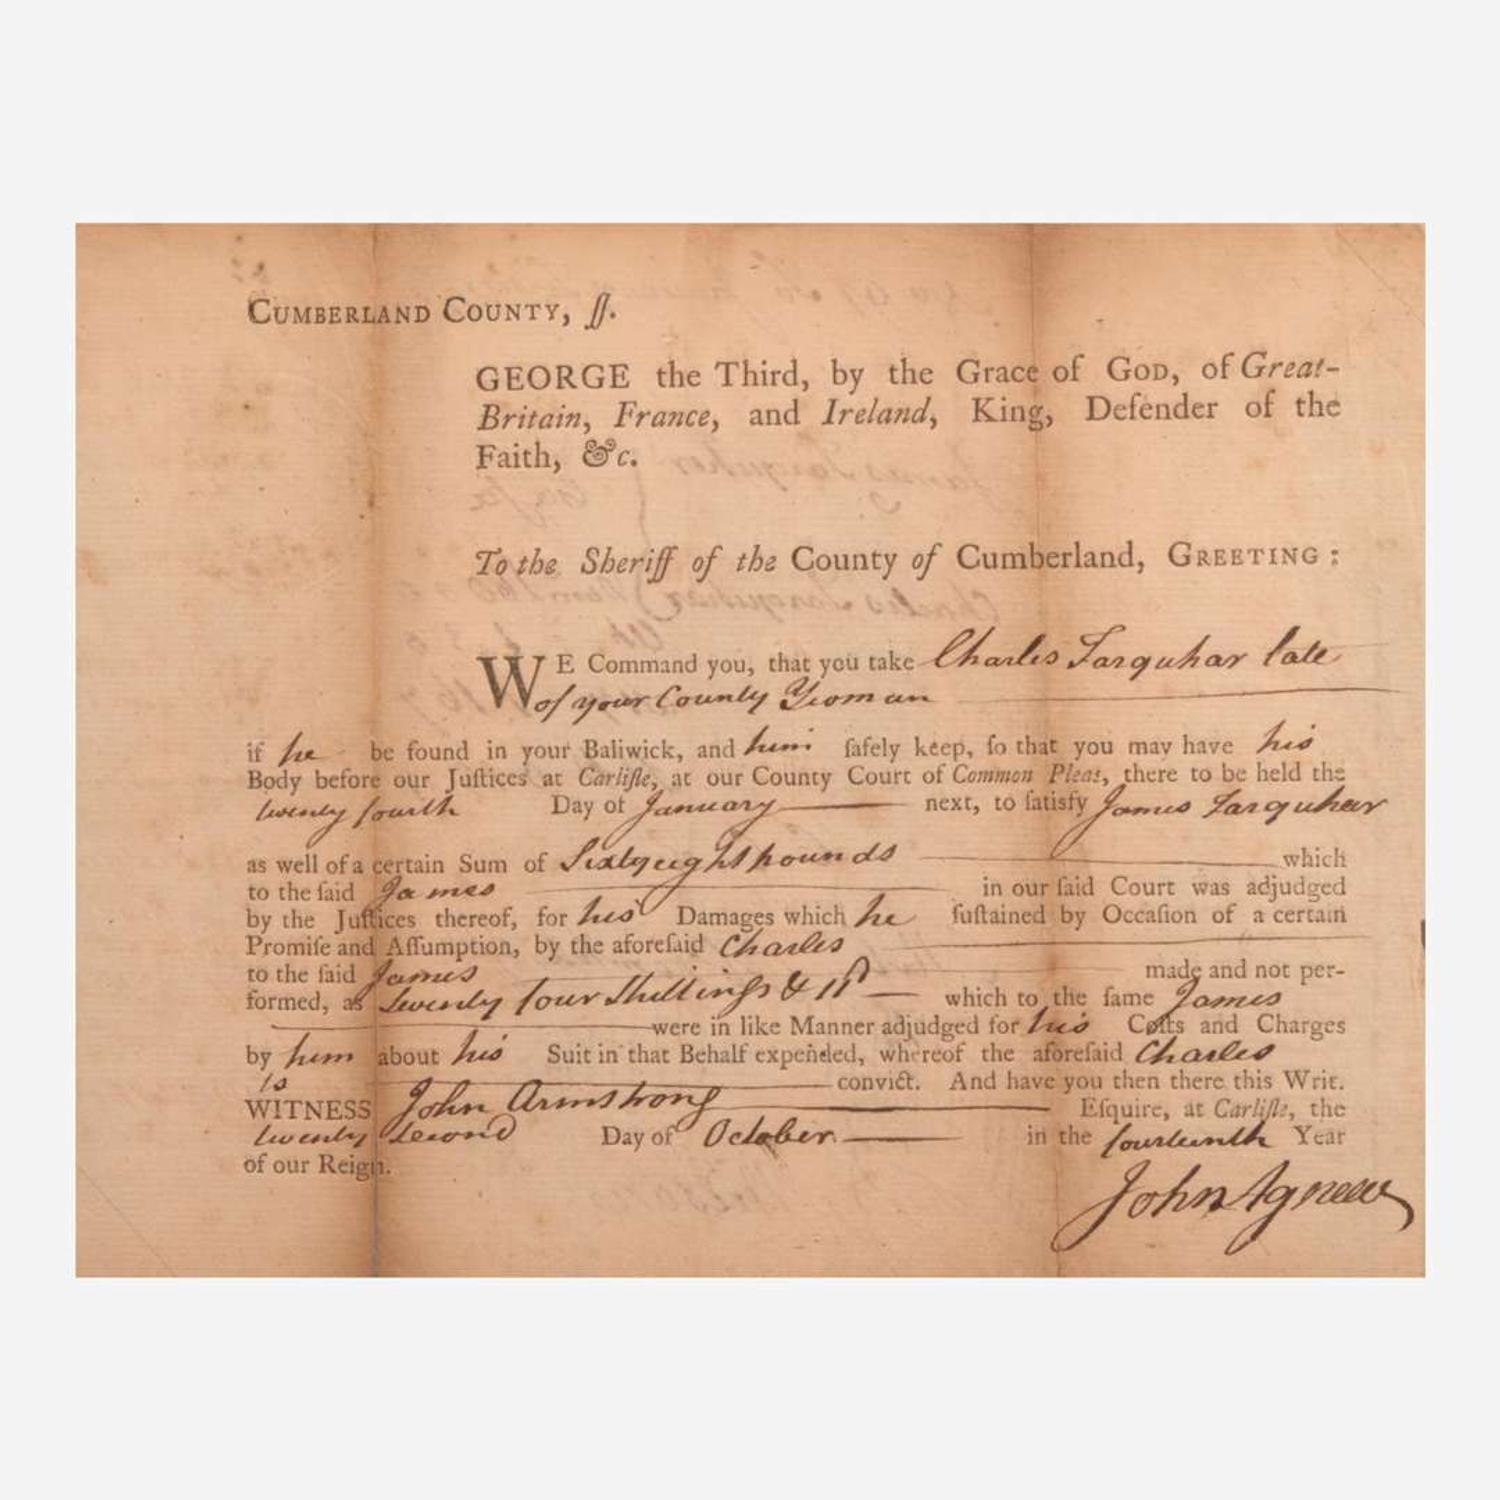 CUMBERLAND COUNTY, ſſ.
GEORGE the Third, by the Grace of GOD, of Great-
Britain, France, and Ireland, King, Defender of the
Faith, &c.
To the Sheriff of the County of Cumberland, GREETING:
WE Command you, that you take Charles Farquhar late
of your County Yeoman
if he be found in your Baliwick, and him ſafely keep, ſo that you may have his
Body before our Juſtices at Carliſle, at our County Court of Common Pleas, there to be held the
twenty fourth Day of January next, to ſatisfy James Farquhar
as well of a certain Sum of Sixty eight pounds which
to the ſaid James in our ſaid Court was adjudged
by the Juſtices thereof, for his Damages which he ſuſtained by Occaſion of a certain
Promiſe and Aſſumption, by the aforeſaid Charles
to the ſaid James made and not per-
formed, as twenty four Shillings & 11d which to the ſame James
were in like Manner adjudged for his Coſts and Charges
by him about his Suit in that Behalf expended, whereof the aforeſaid Charles
is convict. And have you then there this Writ.
WITNESS John Armstrong Eſquire, at Carliſle, the
twenty second Day of October in the fourteenth Year
of our Reign.
John Agnew